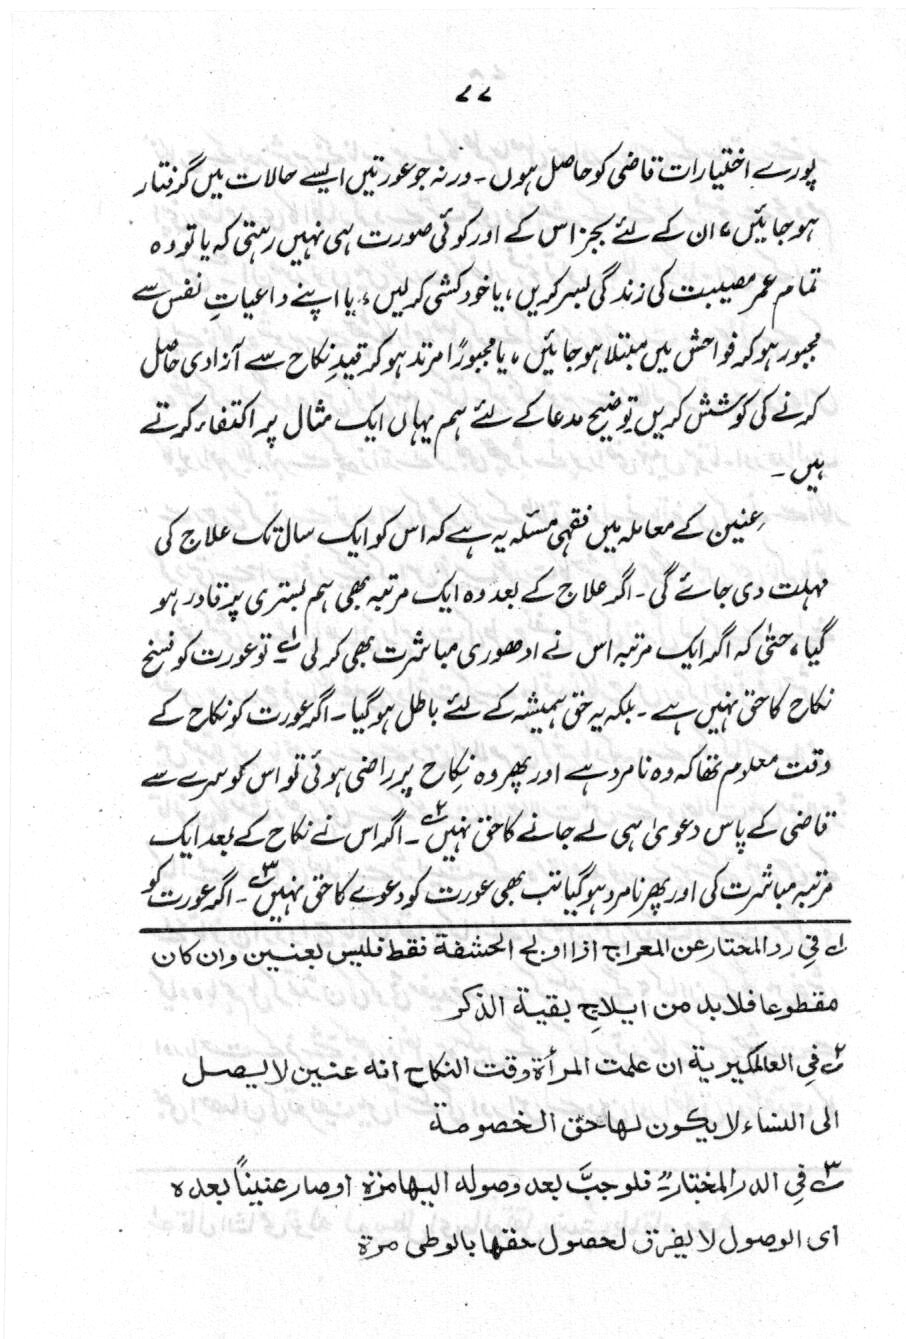 ۷۷
پورے اختیارات قاضی کو حاصل ہوں۔ ورنہ جو عورتیں ایسے حالات میں گرفتار
ہو جائیں، ان کے لئے بجز اس کے اور کوئی صورت ہی نہیں رہتی کہ یا تو وہ
تمام عمر مصیبت کی زندگی بسر کریں، یا خودکشی کرلیں، یا اپنے داعیاتِ نفس سے
مجبور ہو کر فواحش میں مبتلا ہو جائیں، یا مجبوراً مرتد ہو کر قیدِ نکاح سے آزادی حاصل
کرنے کی کوشش کریں توضیح مدعا کے لئے ہم یہاں ایک مثال پر اکتفاء کرتے
ہیں۔
عِنین کے معاملہ میں فقہی مسئلہ یہ ہے کہ اس کو ایک سال تک علاج کی
مہلت دی جائے گی۔ اگر علاج کے بعد وہ ایک مرتبہ بھی ہم بستری پر قادر ہو
گیا، حتٰی کہ اگر ایک مرتبہ اس نے ادھوری مباشرت بھی کر لی ۱؎ تو عورت کو فسخ
نکاح کا حق نہیں ہے۔ بلکہ یہ حق ہمیشہ کے لئے باطل ہو گیا۔ اگر عورت کو نکاح کے
وقت معلوم تھا کہ وہ نامرد ہے اور پھر وہ نکاح پر راضی ہوئی تو اس کو سرے سے
قاضی کے پاس دعویٰ ہی لے جانے کا حق نہیں ۲؎۔ اگر اس نے نکاح کے بعد ایک
مرتبہ مباشرت کی اور پھر نامرد ہو گیا تب بھی عورت کو دعوے کا حق نہیں ۳؎۔ اگر عورت کو
۱؎ فی رد المختار عن المعراج اذا اولج الحشفة فقط فلیس بعنین وان کان
مقطوعا فلا بد من ایلاج بقیة الذکر
۲؎ فی العالمگیریة ان علمت المرأة وقت النکاح انه عنین لا یصل
الی النساء لا یکون لها حق الخصومة
۳؎ فی الدر المختار فلو جبَّ بعد وصوله الیها مرة او صار عنیناً بعده
ای الوصول لا یفرق لحصول حقها بالوطی مرة